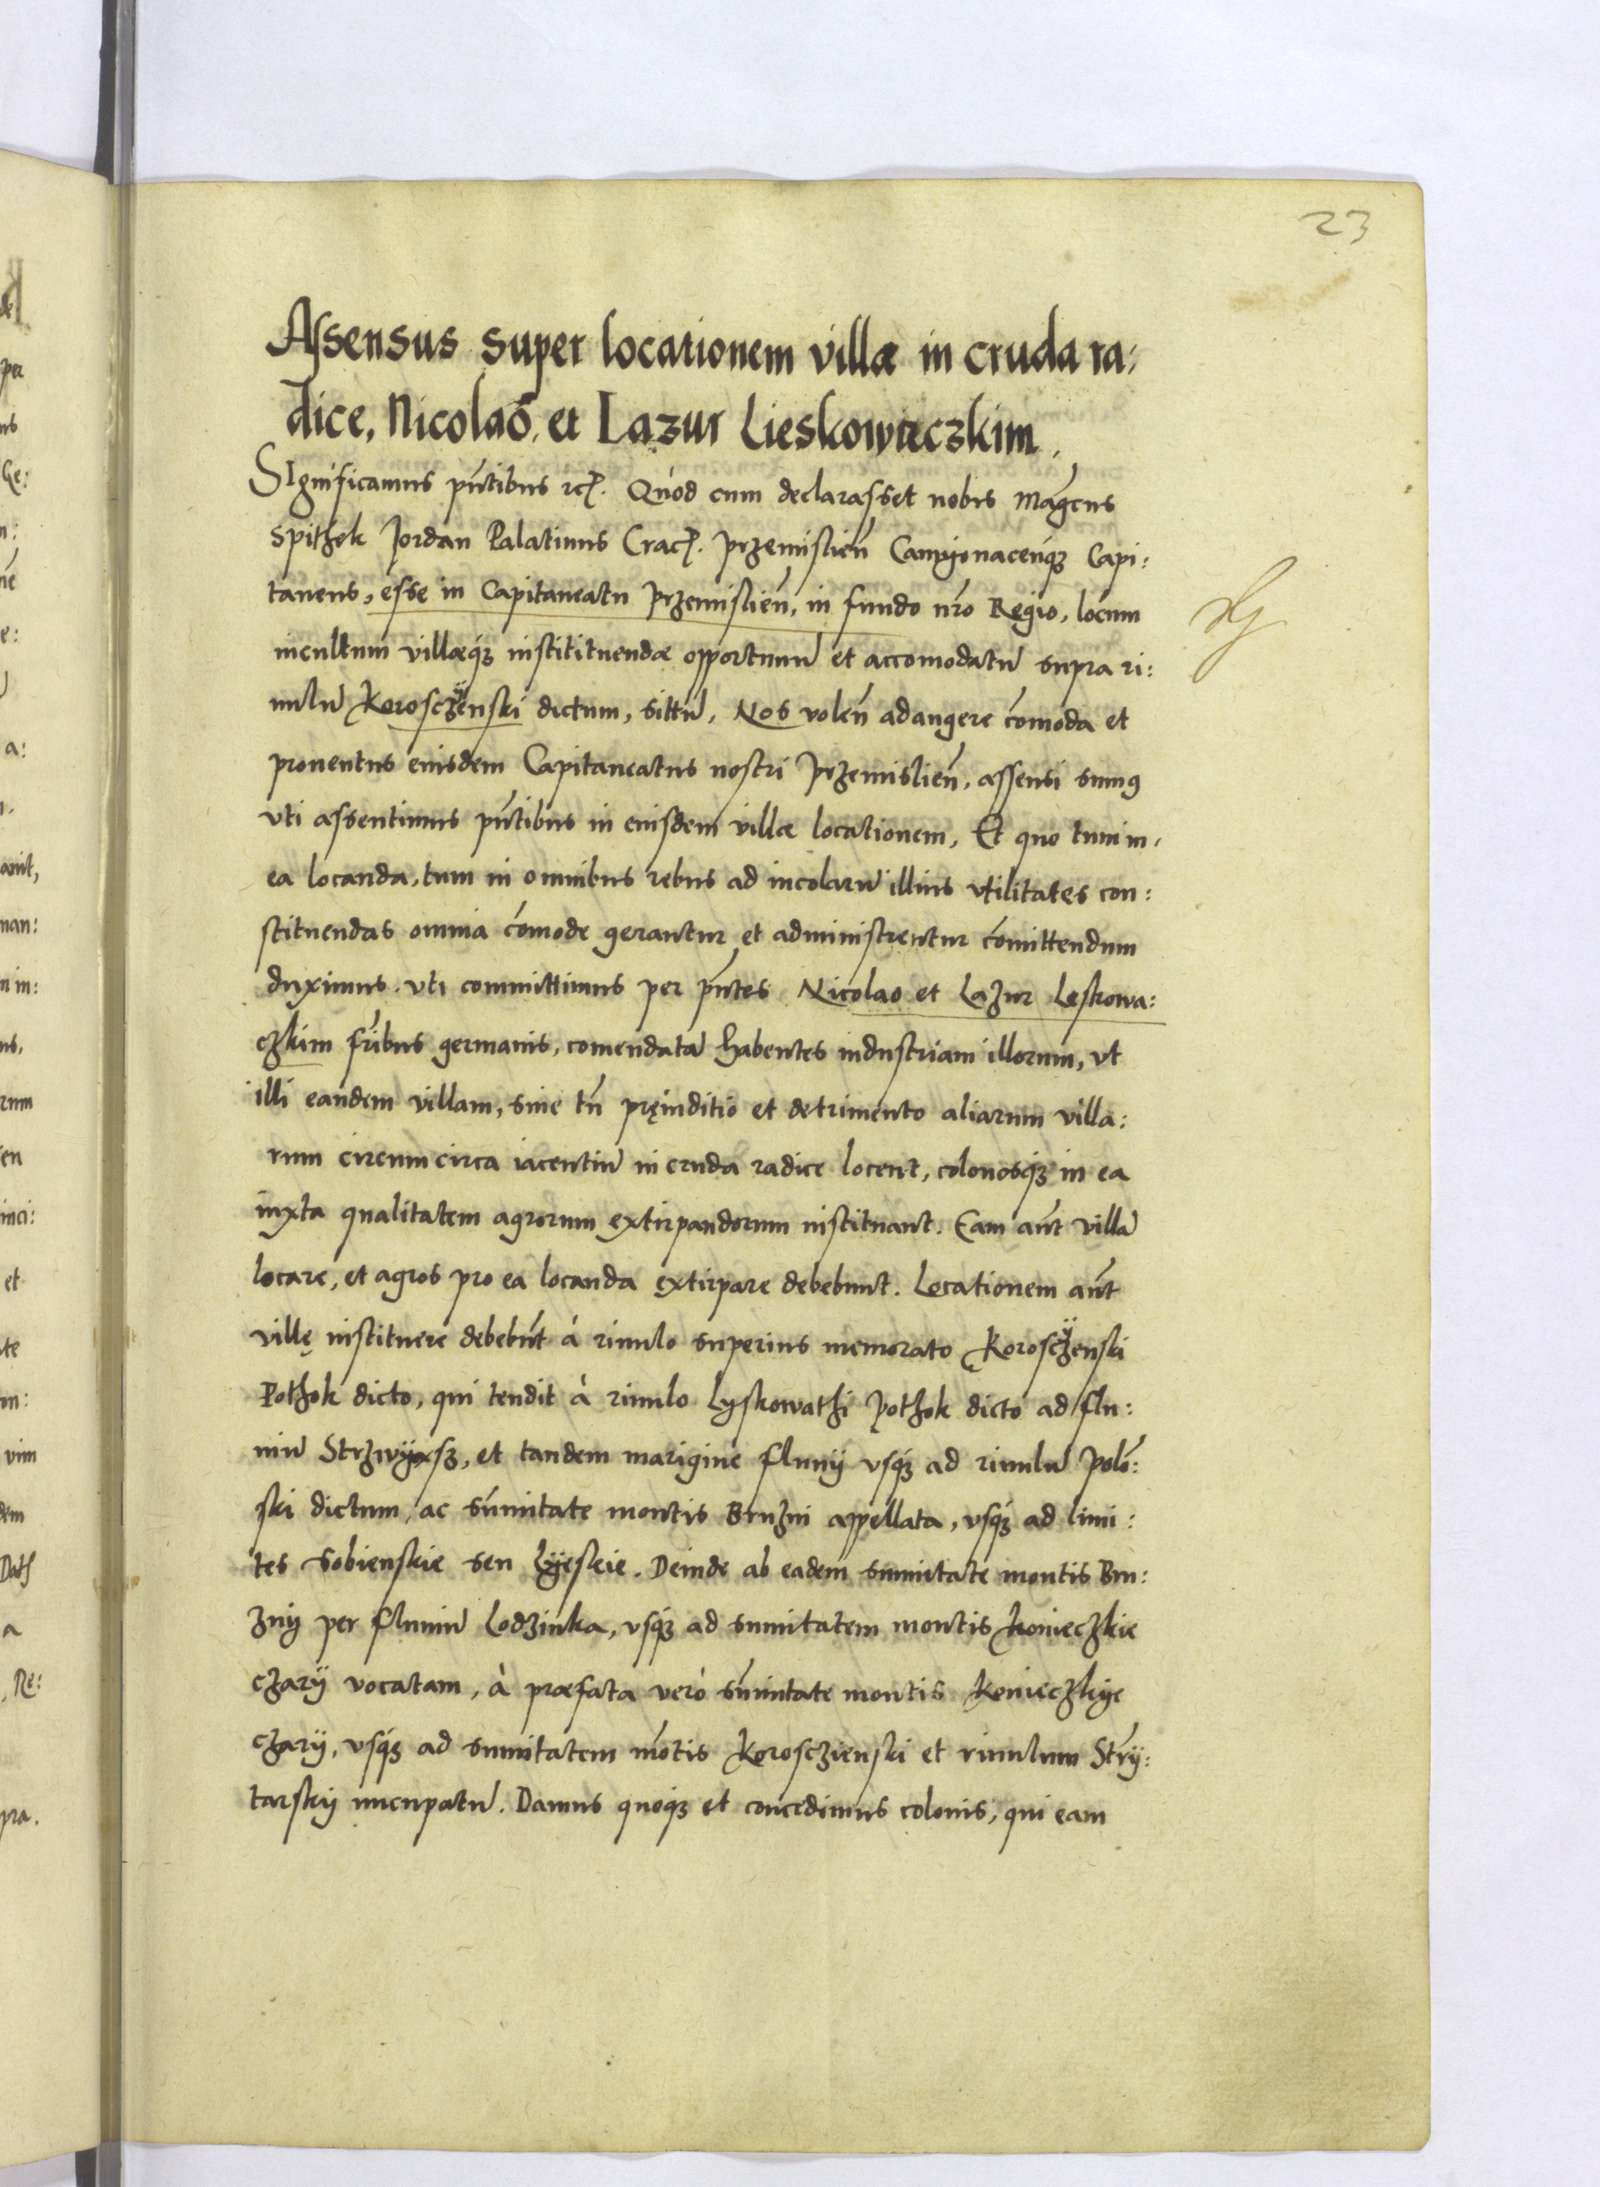 23
Assensus super locationem villæ in cruda ra:
dice, Nicolao, et Lazur Lieskowieczkim.
SIgnificamus pñtibus rc̃. Quòd cum declarasset nobis Magcus
Spithek Jordan Palatinus Crac̃. Przemislieñ Camyonaceñq3 Capi:
taneus, esse in Capitaneatu Przemislieñ, in fundo nr̃o Regio, locum
incultum villæq3 instititutendæ opportunũ et accomodatũ supra ri:
uulũ Korosczÿenski dictum, sitũ, Nos voleñ adaugere com̃oda et
prouentus eiusdem Capitaneatus nostri Przemislieñ, assensi sumus
vti assentimus pñtibus in eiusdem villæ locationem, Et quo tum in
ea locanda, tum in omnibus rebus ad incolarũ illius vtilitates con:
stituendas omnia com̃ode gerantur et administrentur com̃ittendum
duximus. vti committimus per pñtes Nicolao et Lazur Leskowa:
czkim fr̃ibus germanis, comendatã habentes industriam illorum, vt
illi eandem villam, sine tñ pręiuditio et detrimento aliarum villa:
rum circumcirca iacentiũ in cruda radice locent, colonosq3 in ea
iuxta qualitatem agrorum extirpandorum instituant. Eam aut̃ villã
locare, et agros pro ea locanda extirpare debebunt. Locationem aut̃
villę instituere debebũt à riuulo superius memorato Korosczÿenski
Pothok dicto, qui tendit à riuulo Lyskowathi Pothok dicto ad flu:
uiũ Strzwyasz, et tandem marigine fluuij vsq3 ad riuulũ Polo͂:
ski dictum, ac sum̃itate montis Bruzni appellata, vsq3 ad limi:
tes Sobienskie seu Lyeskie. Deinde ab eadem sumitate montis Bru:
znij per fluuiũ Lodzinka, vsq3 ad sumitatem montis Konieczkie
czarÿ vocatam, à præfata verò sum̃itate montis Konieczkye
czarÿ, vsq3 ad sumitatem mo͂tis Korosczienski et riuulum Strÿ:
tarskij nuncupatũ. Damus quoq3 et concedimus colonis, qui eam